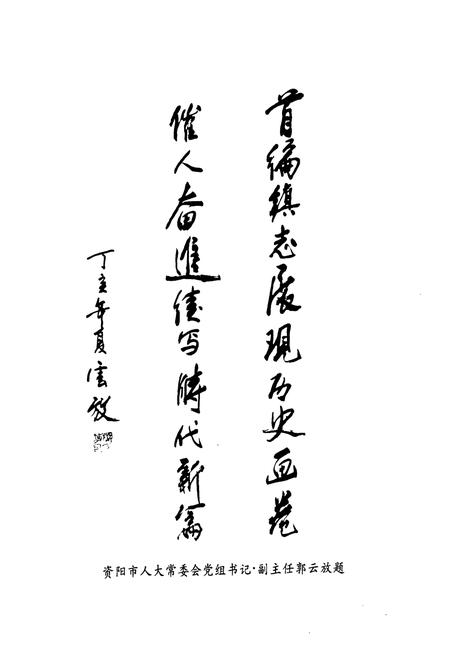 首编镇志展现历史画卷
催人奋進续写時代新篇
丁亥年夏云放
资阳市人大常委会党组书记·副主任郭云放题